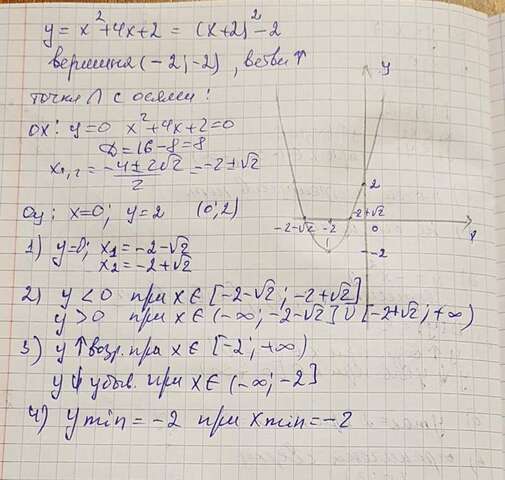 y = x² + 4x + 2 = (x+2)² - 2
вершина (-2; -2), ветви ↑
точки Π с осями:
ox: y=0 x² + 4x + 2 = 0
D = 16 - 8 = 8
x₁,₂ = (-4 ± 2√2)/2 = -2 ± √2
Oy: x=0; y=2 (0; 2)
1) y=0; x₁ = -2-√2
x₂ = -2+√2
2) y < 0 при x ∈ [-2-√2; -2+√2]
y > 0 при x ∈ (-∞; -2-√2] ∪ [-2+√2; +∞)
3) y ↑ возр. при x ∈ [-2; +∞)
y ↓ убыв. при x ∈ (-∞; -2]
4) y min = -2 при x min = -2
y
2
-2-√2 -2 -2+√2 0 x
-2